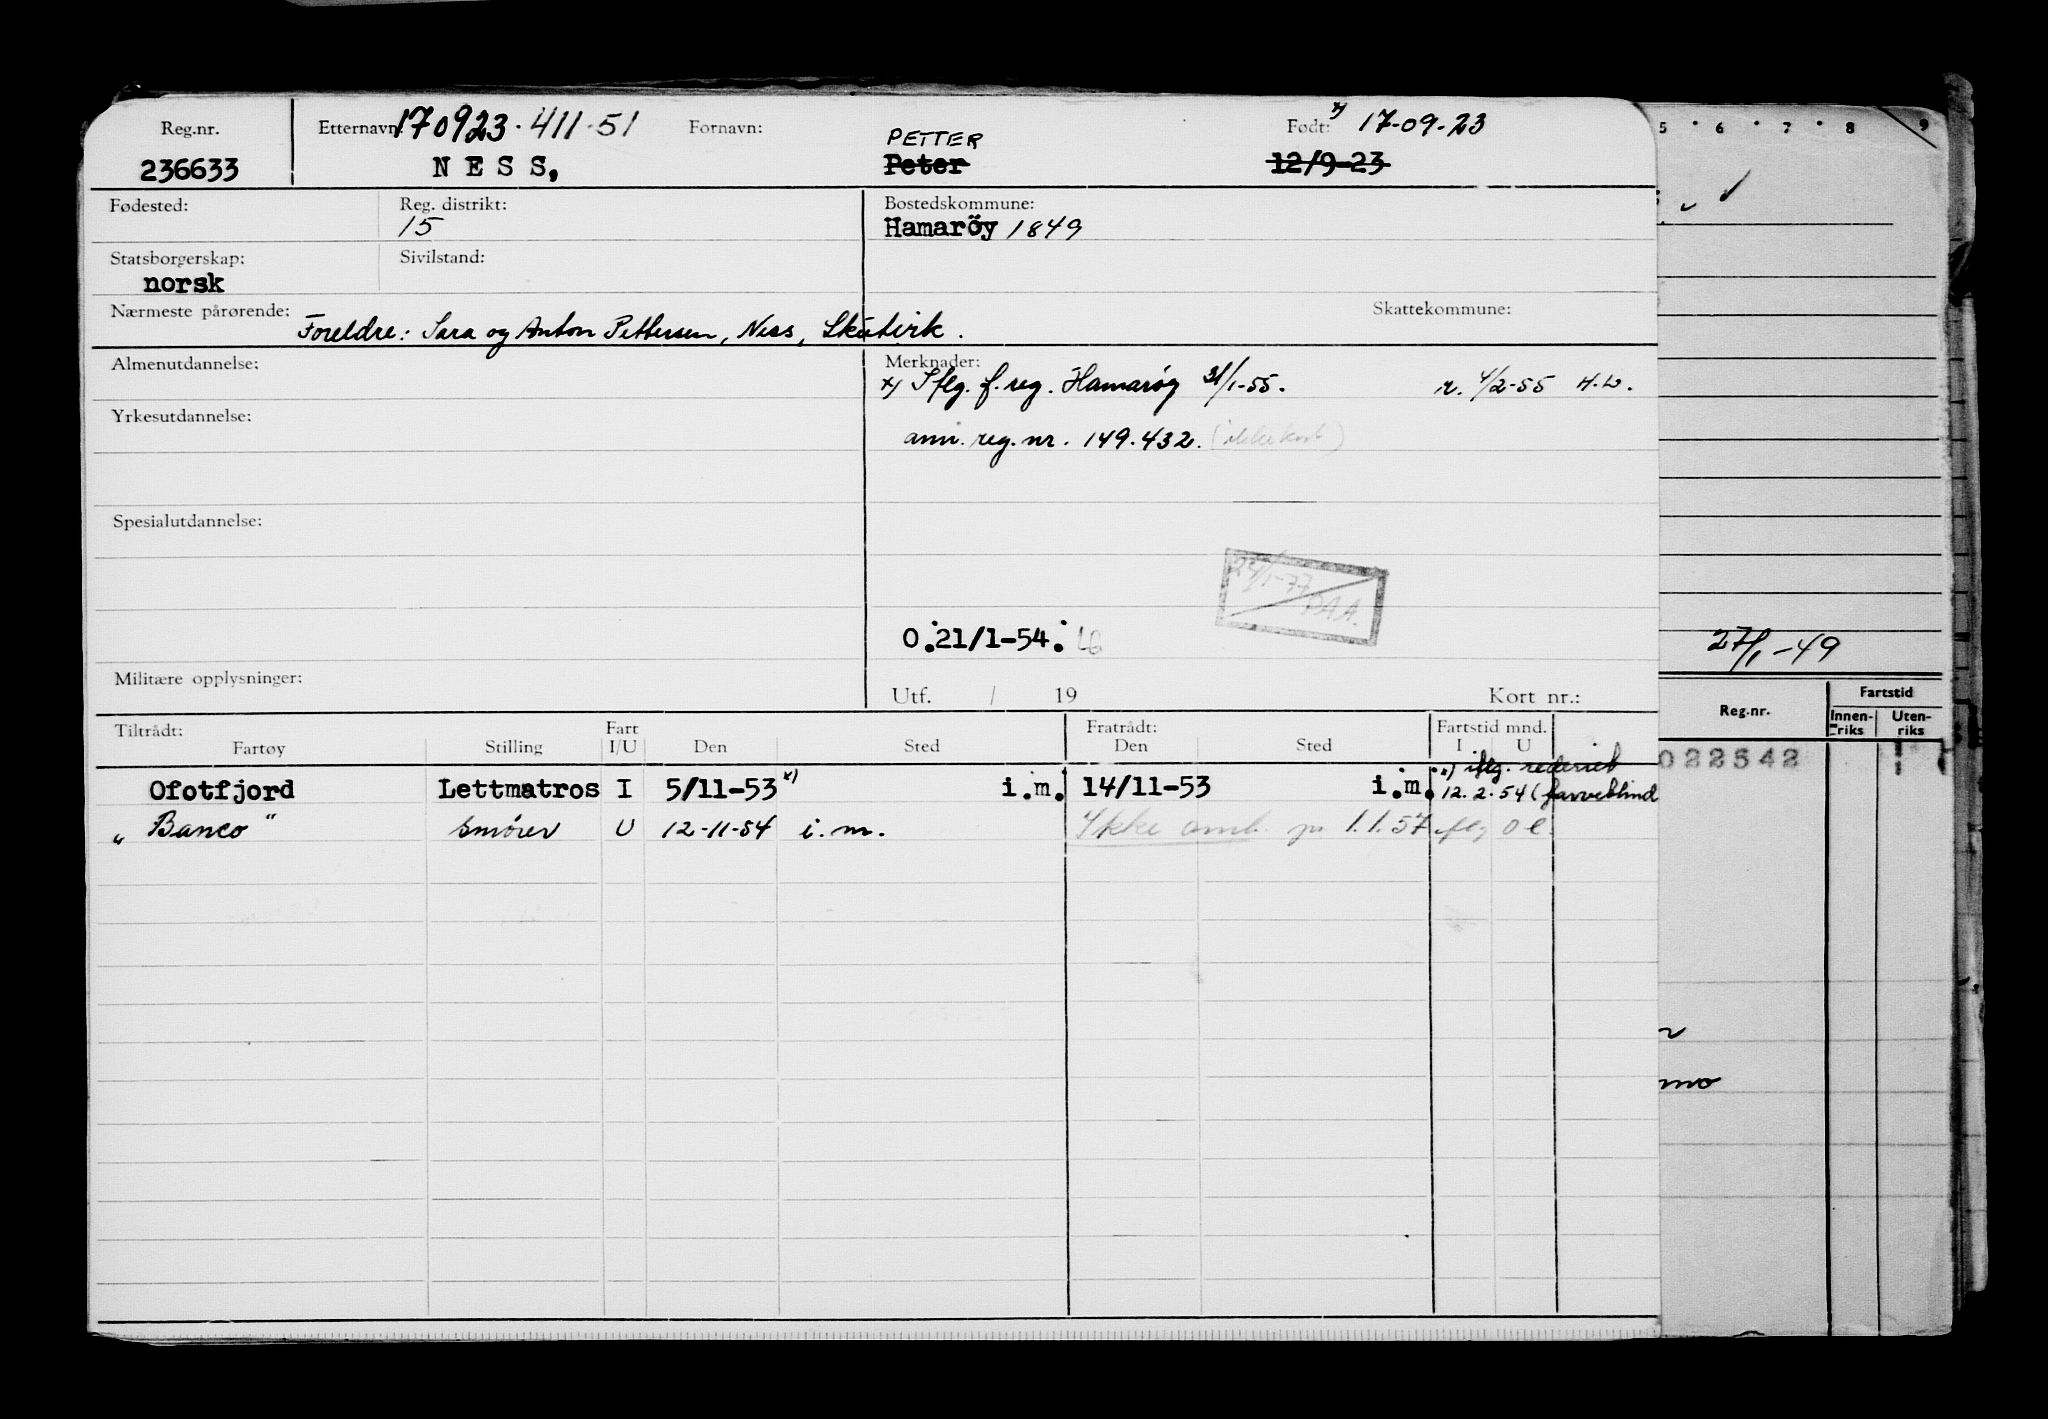 Reg.nr. Etternavn: 170923-411-51 Fornavn: Født: x) 17-09-23
PETTER
236633 NESS, Peter 12/9-23
Fødested: Reg. distrikt: Bostedskommune:
15 Hamaröy 1849
Statsborgerskap: Sivilstand:
norsk
Nærmeste pårørende: Skattekommune:
Foreldre: Sara og Anton Pettersen, Ness, Skutvik.
Almenutdannelse: Merknader:
x) Iflg. f.reg. Hamarøy 31/1-55. r. 4/2-55 H.W.
Yrkesutdannelse:
ann. reg. nr. 149.432.
Spesialutdannelse:
24/1-77
BAA.
O.21/1-54.
Militære opplysninger:
Utf. / 19 Kort nr.:
Tiltrådt: Fart Fratrådt: Fartstid mnd.
Fartøy Stilling I/U Den Sted Den Sted I U
x) iflg. rederiet
Ofotfjord Lettmatros I 5/11-53 x) i.m. 14/11-53 i.m. 12.2.54 (farveblind
"Banco" Smører U 12-11-54 i.m. Ikke omb. pr 1.1.57 iflg O.l.
5 6 7 8 9
27/1-49
Reg.nr. Fartstid
Innenriks Utenriks
022542